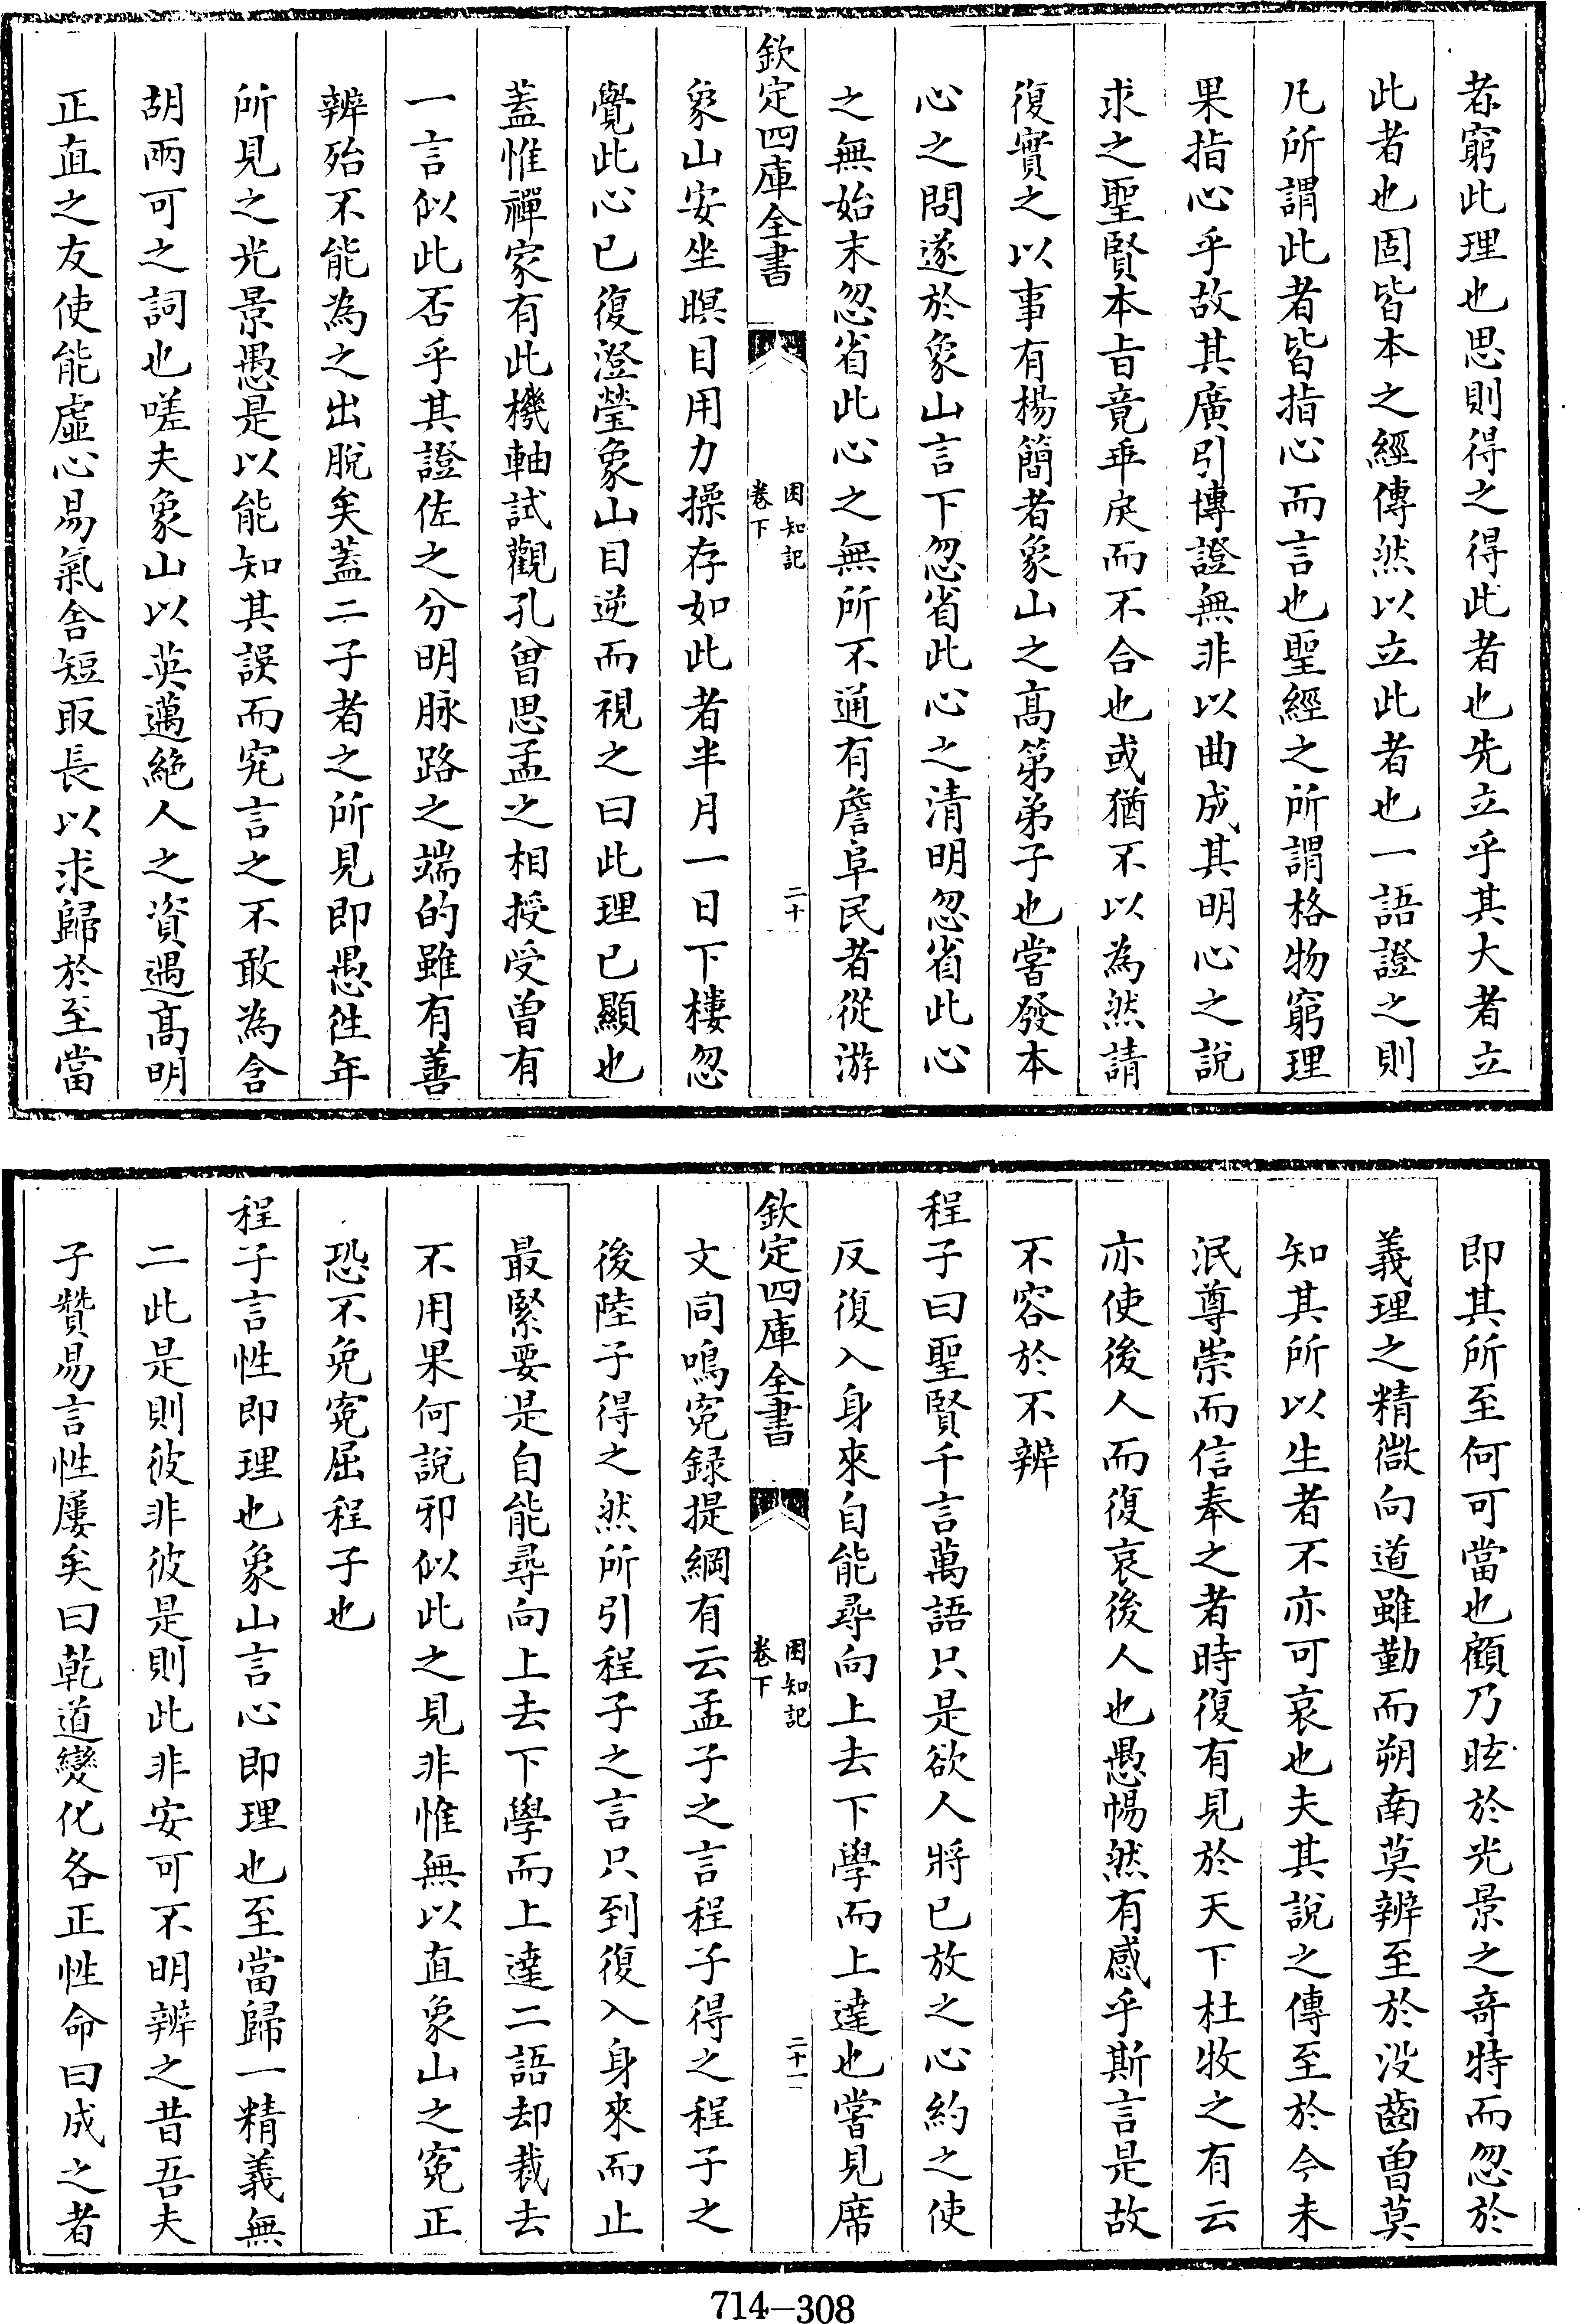 者窮此理也思則得之得此者也先立乎其大者立
此者也固皆本之經傳然以立此者也一語證之則
凡所謂此者皆指心而言也聖經之所謂格物窮理
果指心乎故其廣引博證無非以曲成其明心之說
求之聖賢本旨竟乖戾而不合也或猶不以為然請
復實之以事有楊簡者象山之高第弟子也嘗發本
心之問遂於象山言下忽省此心之清明忽省此心
之無始末忽省此心之無所不通有詹阜民者從游
欽定四庫全書
困知記
卷下
二十
象山安坐瞑目用力操存如此者半月一日下樓忽
覺此心已復澄瑩象山目逆而視之曰此理已顯也
蓋惟禪家有此機軸試觀孔曾思孟之相授受曾有
一言似此否乎其證佐之分明脉路之端的雖有善
辨殆不能為之出脫矣蓋二子者之所見即愚徃年
所見之光景愚是以能知其誤而究言之不敢為含
胡兩可之詞也嗟夫象山以英邁絶人之資遇高明
正直之友使能虛心易氣舍短取長以求歸於至當
即其所至何可當也顧乃眩於光景之奇特而忽於
義理之精微向道雖勤而朔南莫辨至於没齒曾莫
知其所以生者不亦可哀也夫其說之傳至於今未
泯尊崇而信奉之者時復有見於天下杜牧之有云
亦使後人而復哀後人也愚惕然有感乎斯言是故
不容於不辨
程子曰聖賢千言萬語只是欲人將已放之心約之使
反復入身來自能尋向上去下學而上達也嘗見席
欽定四庫全書
困知記
卷下
二十一
文同鳴寃録提綱有云孟子之言程子得之程子之
後陸子得之然所引程子之言只到復入身來而止
最緊要是自能尋向上去下學而上達二語却裁去
不用果何說邪似此之見非惟無以直象山之寃正
恐不免寃屈程子也
程子言性即理也象山言心即理也至當歸一精義無
二此是則彼非彼是則此非安可不明辨之昔吾夫
子贊易言性屢矣曰乾道變化各正性命曰成之者
714-308